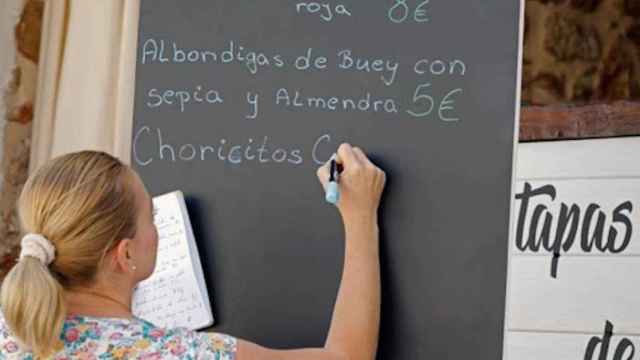 roja 8€
Albondigas de Buey con
sepia y Almendra 5€
Choricitos C
tapas
de